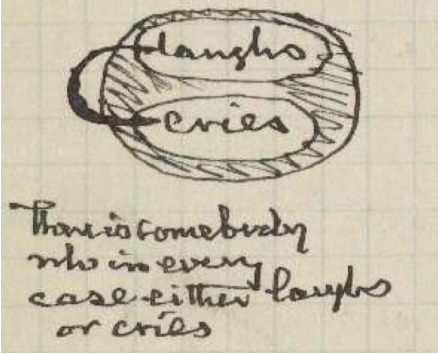 laughs
cries
There is somebody
who in every
case either laughs
or cries